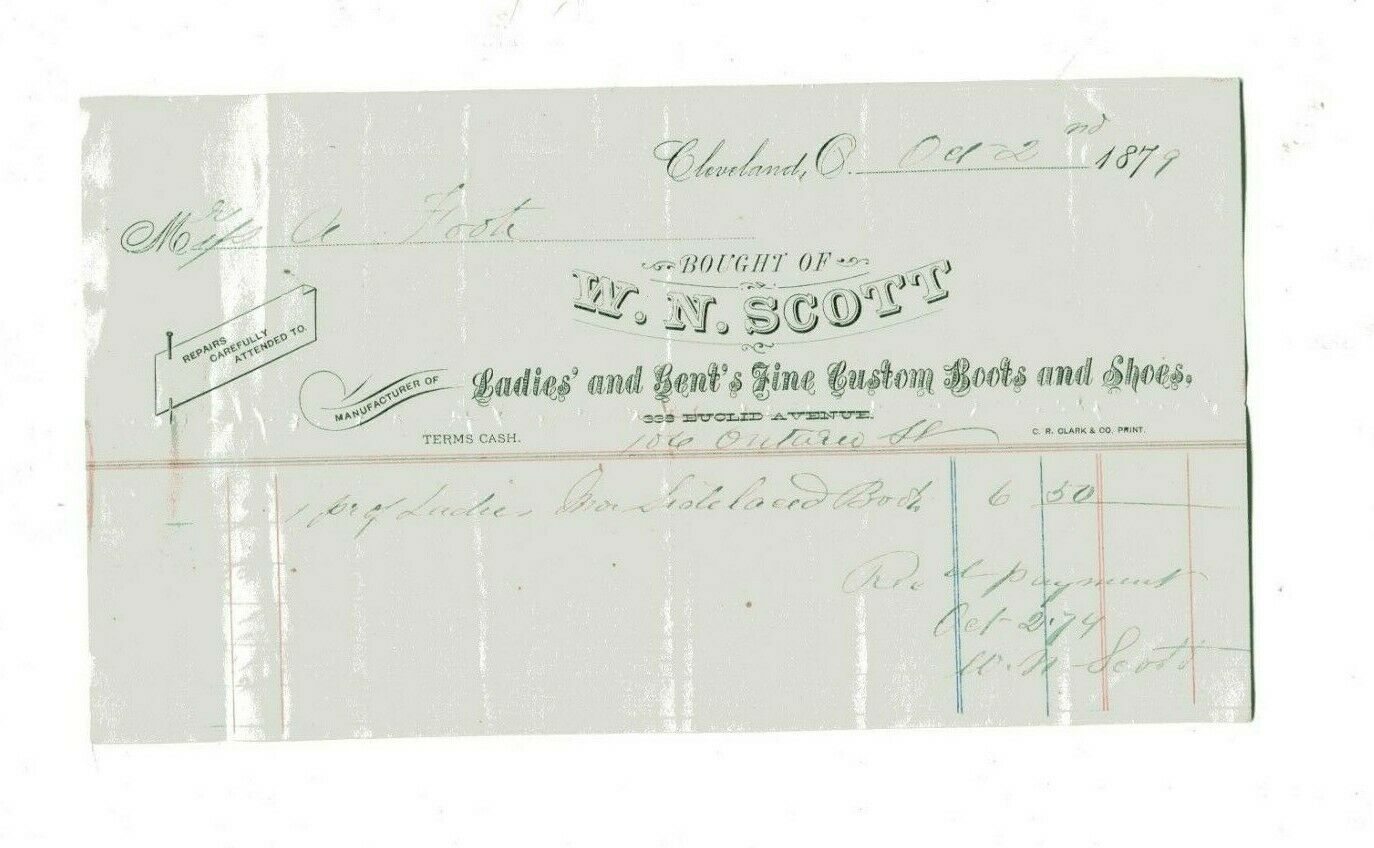 Cleveland, O. Oct 2nd 1879
Miss A Foote
BOUGHT OF
W. N. SCOTT
REPAIRS
CAREFULLY
ATTENDED TO.
MANUFACTURER OF
Ladies' and Gent's Fine Custom Boots and Shoes.
333 EUCLID AVENUE.
106 Ontario St
TERMS CASH.
C. R. CLARK & CO. PRINT.
1 pr of Ladies Side laced Boots 6 50
Recd payment
Oct 2 79
W. N. Scott